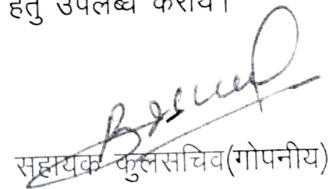 हेतु उपलब्ध करायें।
सहायक कुलसचिव(गोपनीय)